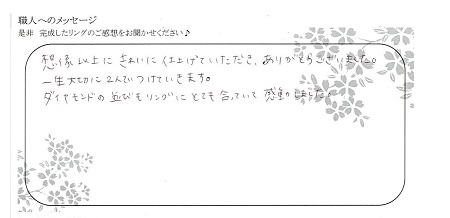 職人へのメッセージ
是非 完成したリングのご感想をお聞かせください♪
想像以上にきれいに仕上げていただき、ありがとうございました。
一生大切に2人でつけていきます。
ダイヤモンドの並びもリングにとても合っていて感動しました。